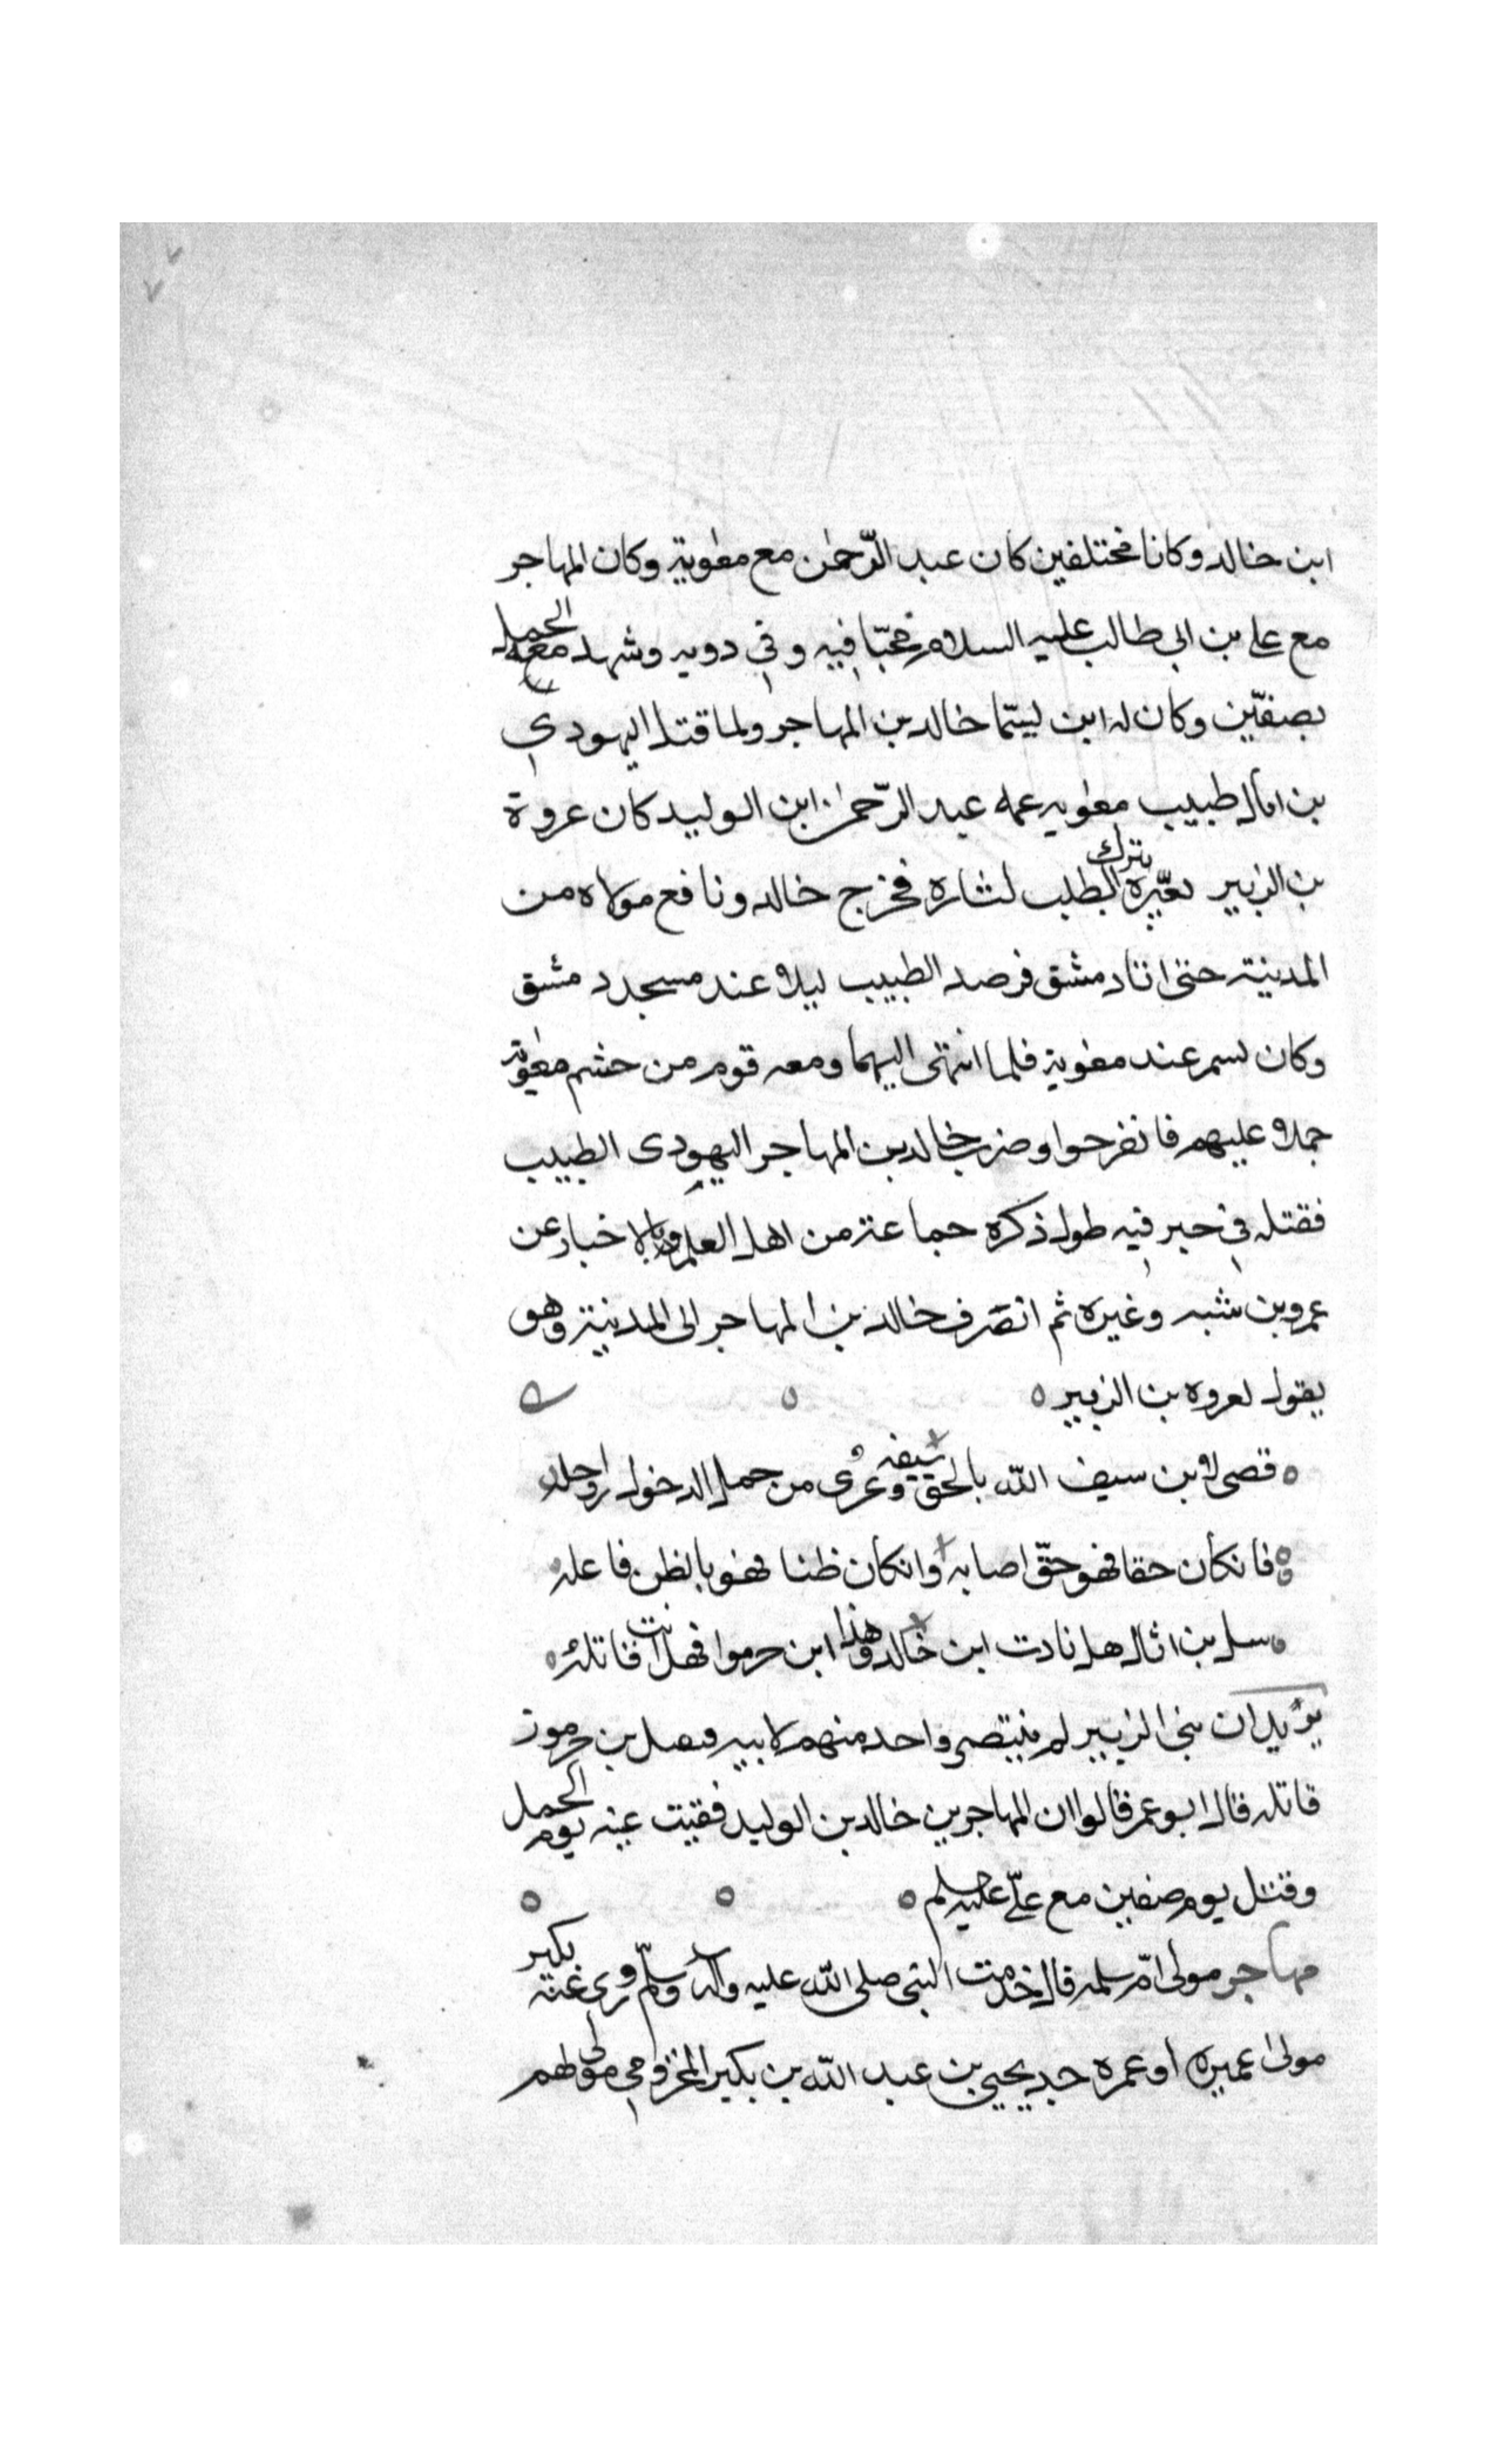 ابن خالد وكانا مختلفين كان عبد الرّحمٰن مع معٰوية وكان المهاجر
مع علي بن ابي طالب عليه السلام محبّا فيه وفي دويه وشهد معه الجمل
بصفّين وكان له ابن ليسمّا خالد بن المهاجر ولما قتل اليهودي
بن اثال طبيب معٰويه عمه عبد الرّحمٰن ابن الوليد كان عروة
بن الزبير يعيّره بترك الطلب لثاره فخرج خالد ونافع مولاه من
المدينة حتى اتا دمشق فرصد الطبيب ليلا عند مسجد دمشق
وكان يسمر عند معٰوية فلما انتهى اليهما ومعه قوم من حشم معٰوية
حملا عليهم فانفرجوا وضرب خالد بن المهاجر اليهودى الطبيب
فقتله في خبر فيه طول ذكره جماعة من اهل العلم بالاخبار عن
عمرو بن شبه وغيره ثم انصرف خالد بن المهاجر الى المدينة وهو
يقول لعروه بن الزبير
قصى لابن سيف الله بالحق سيفه وعرى من حمل الدخول رواحله
فانكان حقا فهو حقّ اصابه وانكان ظنا فهو بالظن فاعله
سل بن اثال هل نادت ابن خالد وهذا ابن جرموا فهل انت قاتله
يريد ان بني الزبير لم ينتصر واحد منهم لابيه بن جرموز
قاتله قال ابو عمر قالوا ان المهاجر بن خالد بن الوليد فقيت عينه يوم الجمل
وقتل يوم صفين مع علّي عليه
مهاجر مولى امّ سلمه قال خدمت النبي صلى الله عليه وآله وسلّم روى عنه بكير
مولى عميره او عمره جد يحيى بن عبد الله بن بكير المخزومي مولٰهم